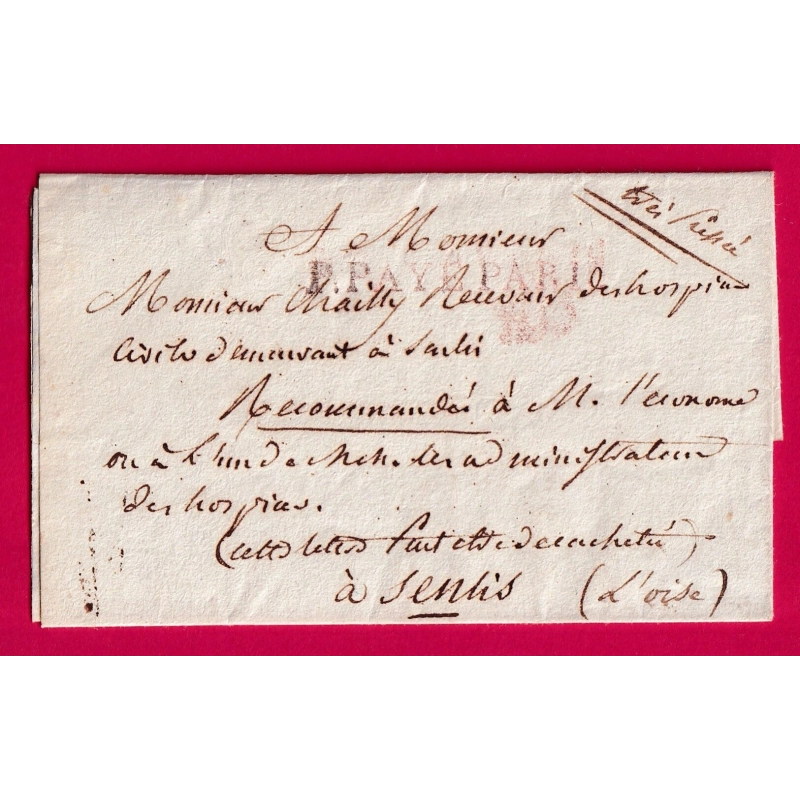 très pressé
A Monsieur
P.PAYÉ PARIS
Monsieur Chailly Receveur des hospices
civils demeurant à Senlis
Recommandée à M. l'économe
ou à l'un de MM. les administrateurs
des hospices.
(cette lettre peut être décachetée)
à Senlis (L'oise)